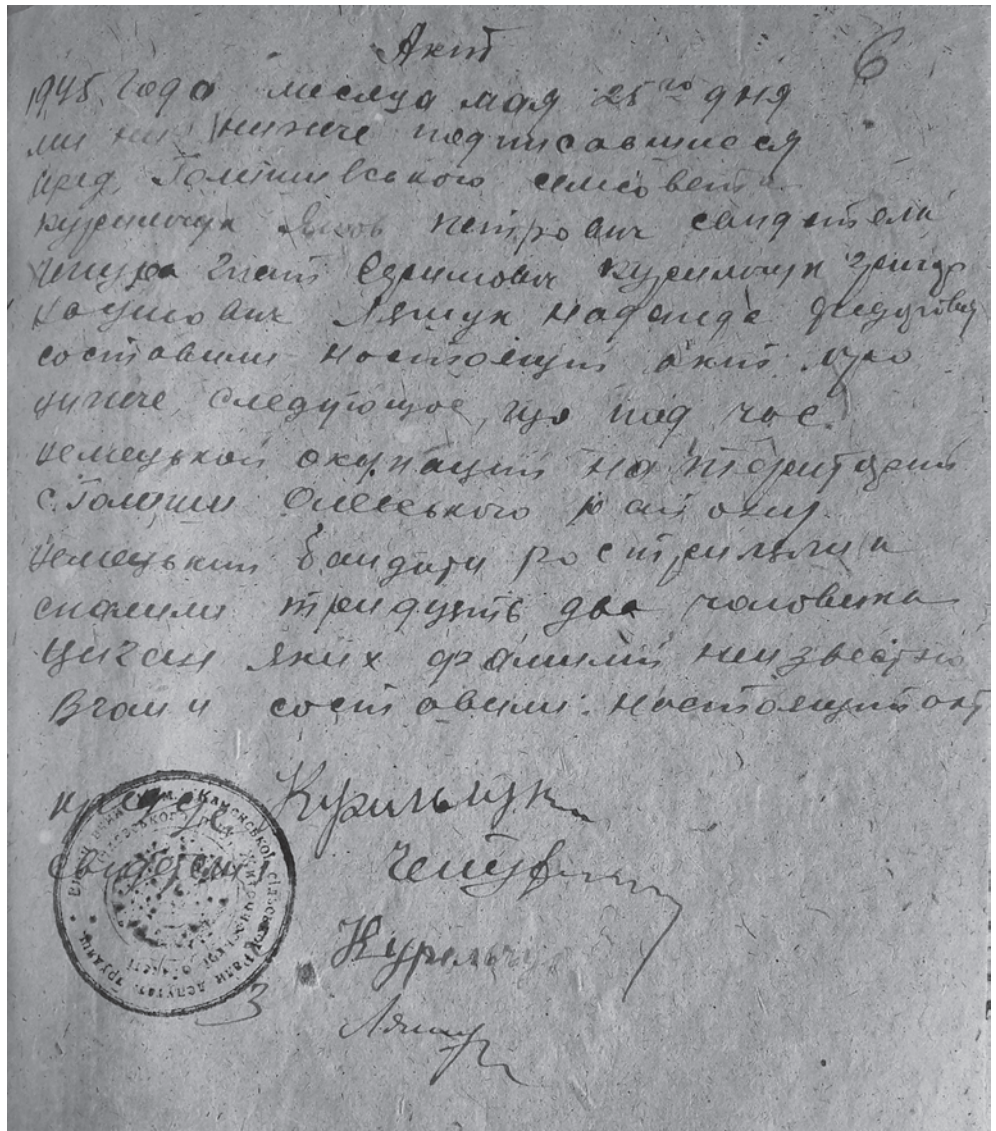 Акт
6
1945 года месяца мая 25го дня
ми ниже подписавшиеся
пред. сельсовета
Курильчук Яков Петрович свидетели
Чепура Гнат Курильчук
Ляшук Надежда
составили настоящий акт про
ниже следующое, що под час
немецькой окупации на територии
с. Олевського району
немецькии бандити рострилялии
спалили тридцять два чоловика
циган яких фамилии неизвестно
В чом и составили настоящий акт
Курильчук
свидетели Чепура
Курильчук
Ляшук